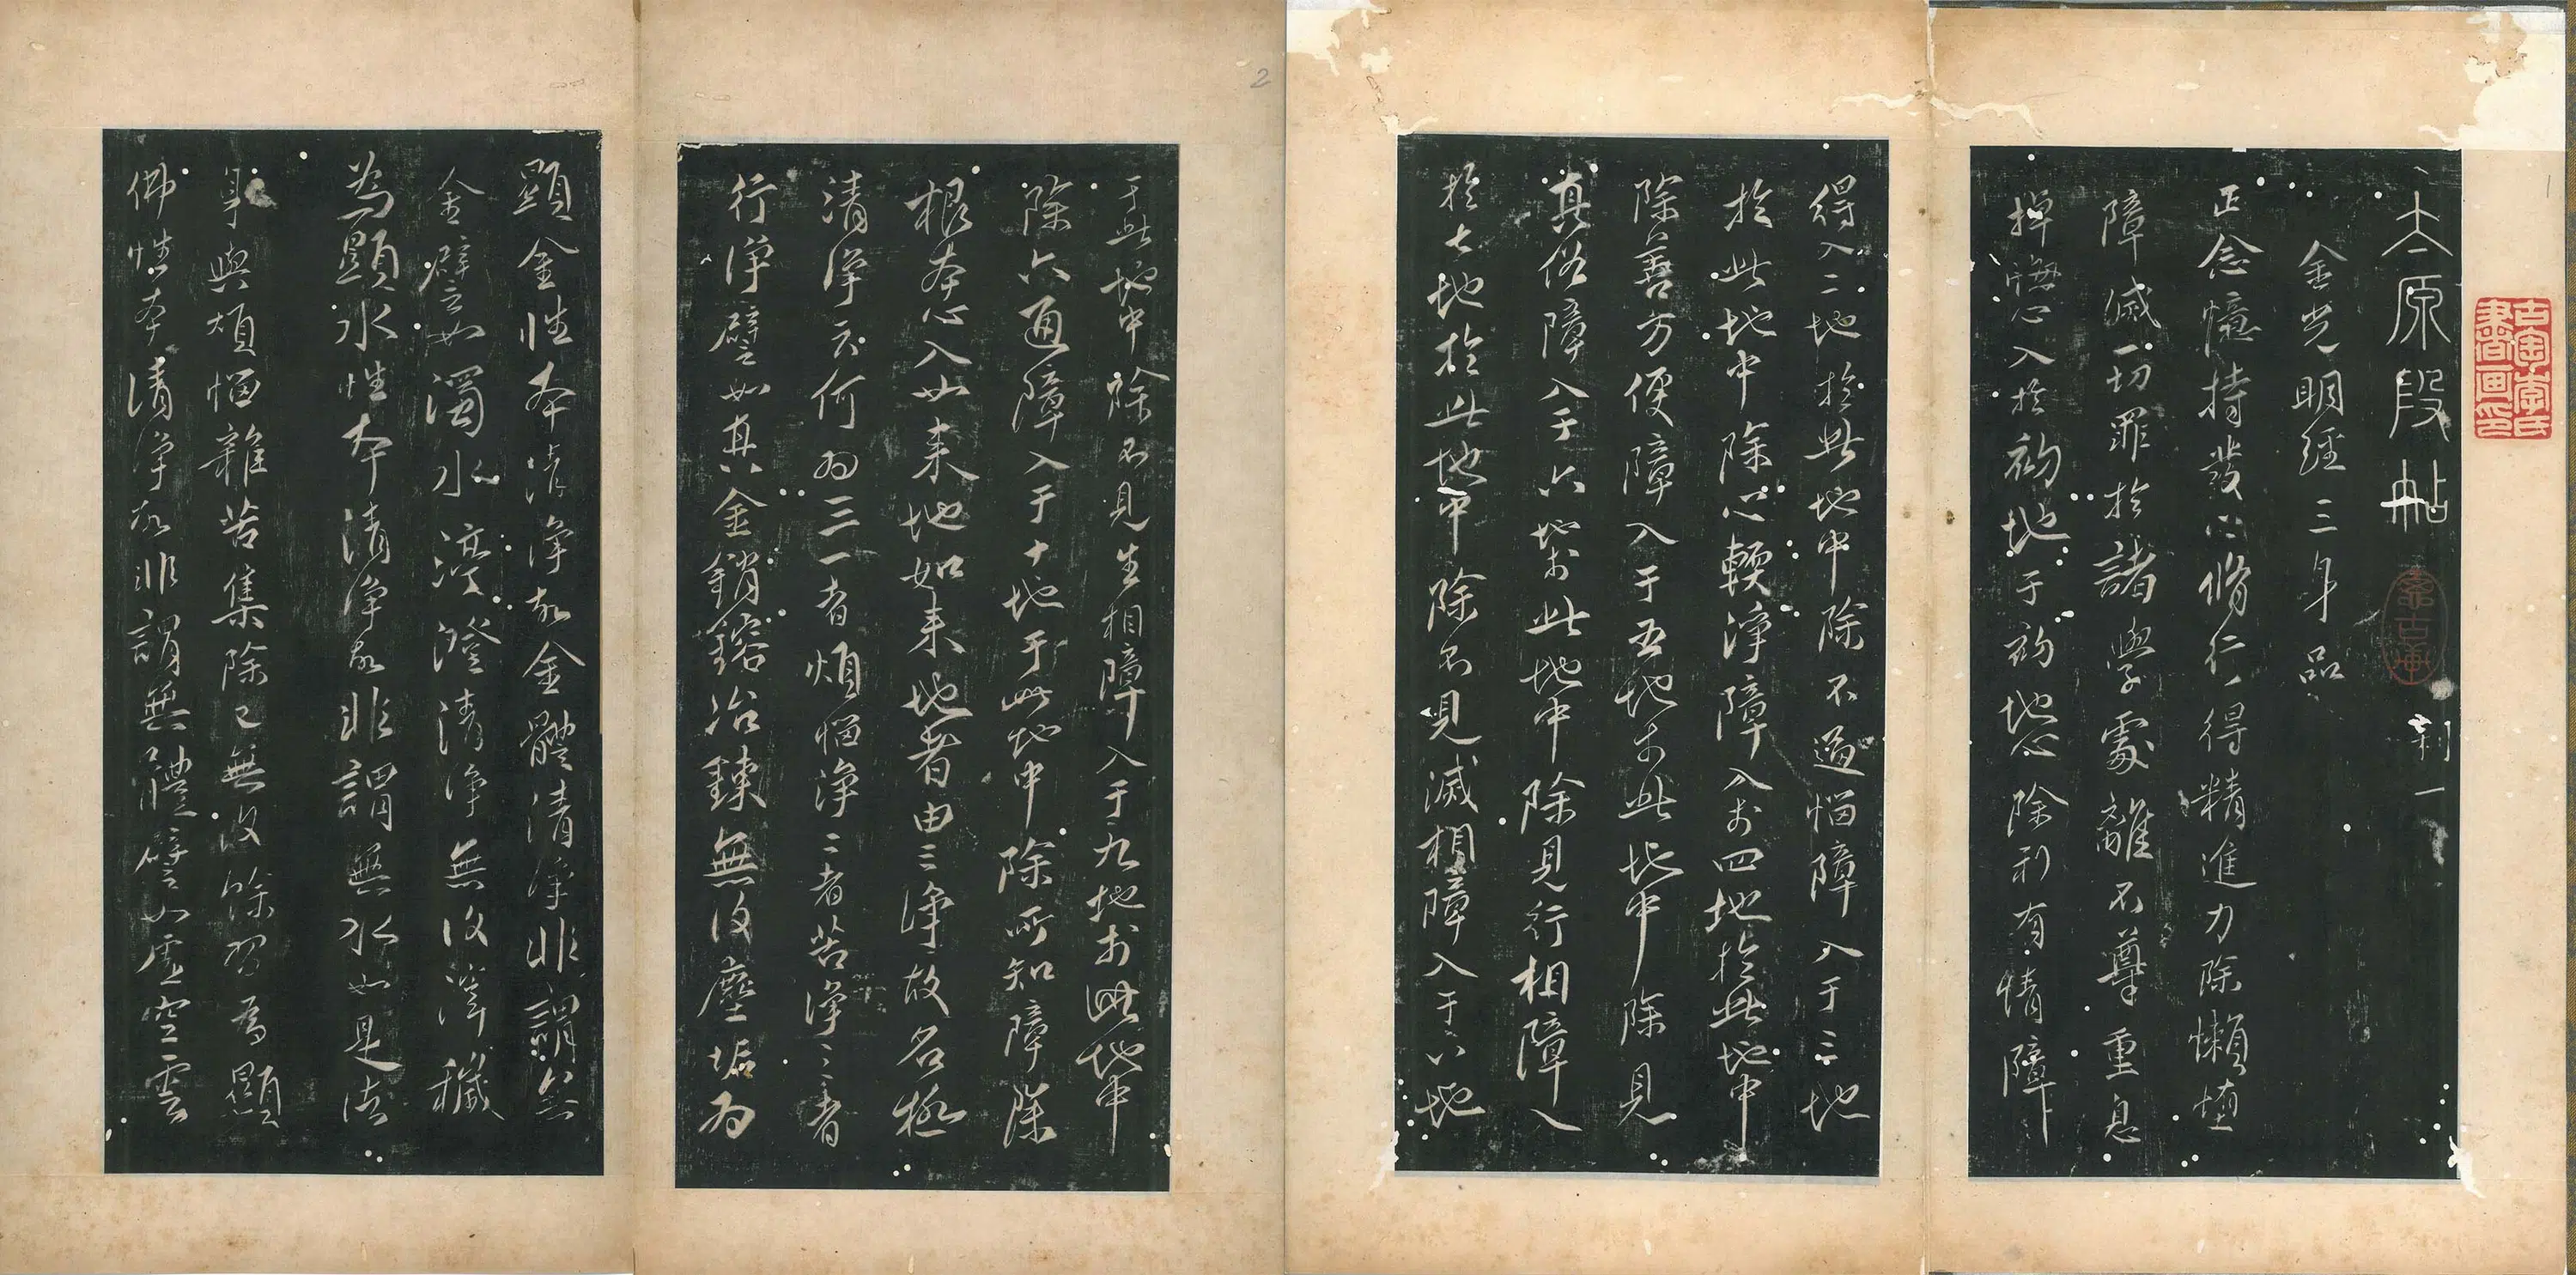 太原段帖
利一
金光明經三身品
正念憶持發心脩行得精進力除懶墮
障滅一切罪於諸學處離不尊重息
掉悔心入於初地于初地心除利有情障
得入二地於此地中除不逼惱障入于三地
於此地中除心輭淨障入於四地於此地中
除善方便障入于五地於此地中除見
真俗障入于六地於此地中除見行相障入
於七地於此地中除不見滅相障入于八地
于此地中除不見生相障入于九地於此地中
除六通障入于十地于此地中除所知障除
根本心入如来地如来地者由三淨故名極
清淨云何為三一者煩惱淨二者苦淨三者
行淨譬如真金銷鎔冶鍊無復塵垢為
顯金性本清淨故金體清淨非謂無
金譬如濁水澄渟清淨無復滓穢
為顯水性本清淨故非謂無水如是法
身與煩惱雜苦集除已無復餘習為顯
佛性本清淨故非謂無體譬如虛空雲